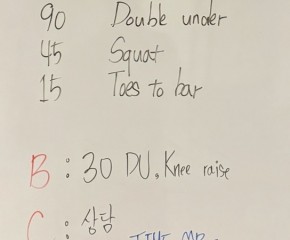 90 Double under
45 Squat
15 Toes to bar
B : 30 DU, Knee raise
C : 상담